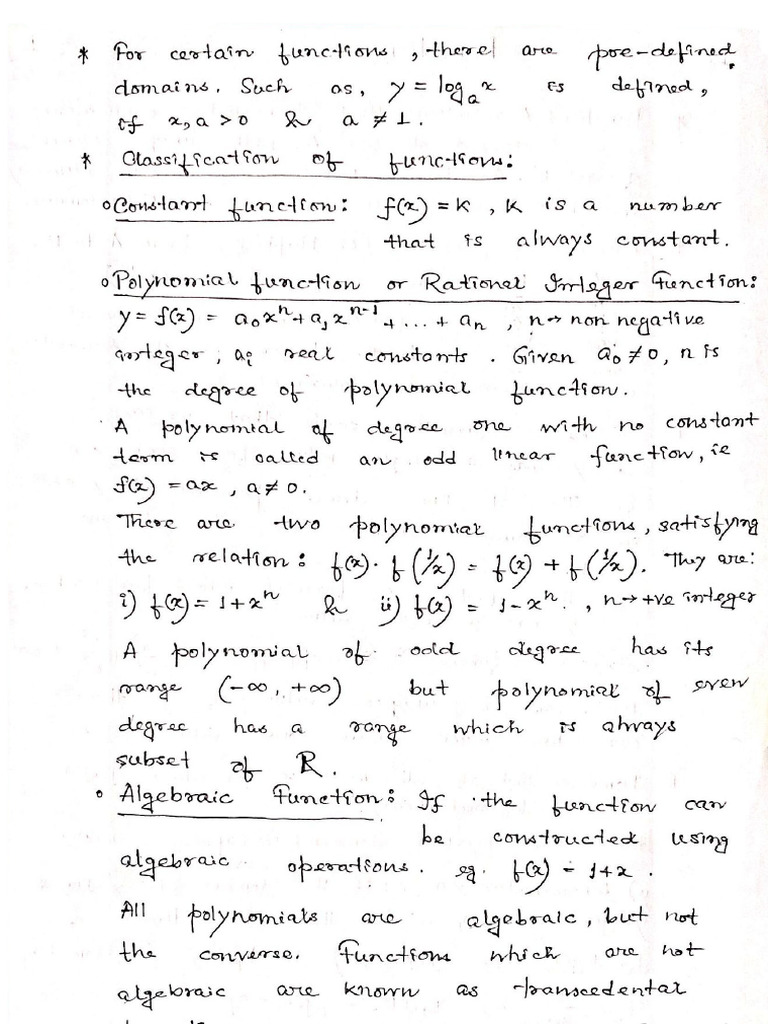 * For certain functions, there are pre-defined
domains. Such as, y = log_a x is defined,
if x, a > 0 & a ≠ 1.
* Classification of functions:
o Constant function: f(x) = k, k is a number
that is always constant.
o Polynomial function or Rational Integer Function:
y = f(x) = a₀xⁿ + a₁xⁿ⁻¹ + ... + aₙ, n → non negative
integer, aᵢ real constants. Given a₀ ≠ 0, n is
the degree of polynomial function.
A polynomial of degree one with no constant
term is called an odd linear function, ie
f(x) = ax, a ≠ 0.
There are two polynomial functions, satisfying
the relation: f(x). f(1/x) = f(x) + f(1/x). They are:
i) f(x) = 1 + xⁿ & ii) f(x) = 1 - xⁿ., n → +ve integer
A polynomial of odd degree has its
range (-∞, +∞) but polynomial of even
degree has a range which is always
subset of R.
o Algebraic Function: If the function can
be constructed using
algebraic operations. eg. f(x) = 1+x.
All polynomials are algebraic, but not
the converse. Functions which are not
algebraic are known as transcedental